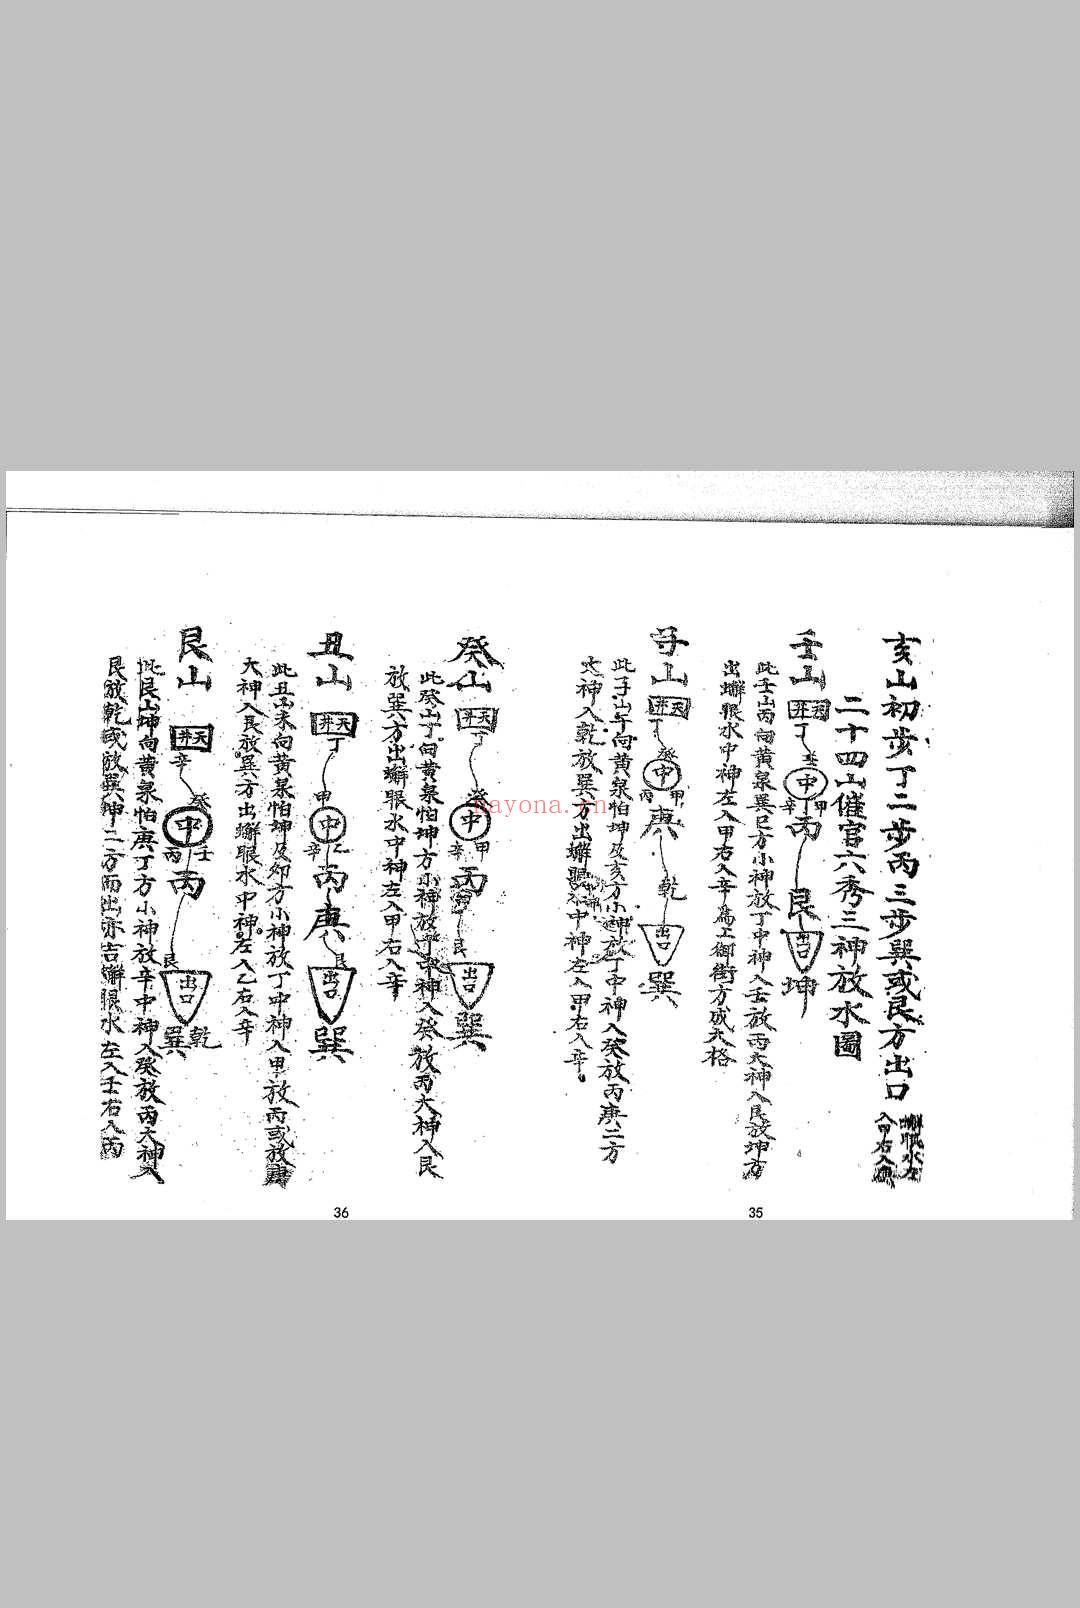 亥山初步丁二步丙三步巽或艮方出口
蠏眼水左
入甲右入庚
二十四山催官六秀三神放水圖
壬山
天井
丁
壬
中
甲
辛
丙
艮
出口
坤
此壬山丙向黃泉巽巳方小神放丁中神入壬放丙大神入艮放坤方
出蠏眼水中神左入甲右入辛爲上御街方成大格
子山
天井
丁
癸
中
甲
丙
庚
乾
出口
巽
此子山午向黃泉怕坤及亥方小神放丁中神入癸放丙庚二方
大神入乾放巽方出蠏眼水中神左入甲右入辛
35
癸山
天井
丁
癸
中
甲
辛
丙
艮
出口
巽
此癸山丁向黃泉怕坤方小神放丁中神入癸放丙大神入艮
放巽方出蠏眼水中神左入甲右入辛
丑山
天井
丁
甲
中
乙
辛
丙
庚
艮
出口
巽
此丑山未向黃泉怕坤及卯方小神放丁中神入甲放丙或放庚
大神入艮放巽方出蠏眼水中神左入乙右入辛
艮山
天井
辛
癸
中
壬
丙
丙
艮
出口
乾
巽
此艮山坤向黃泉怕庚丁方小神放辛中神入癸放丙大神入
艮放乾或放巽坤二方而出亦吉蠏眼水左入壬右入丙
36
nayona.cn